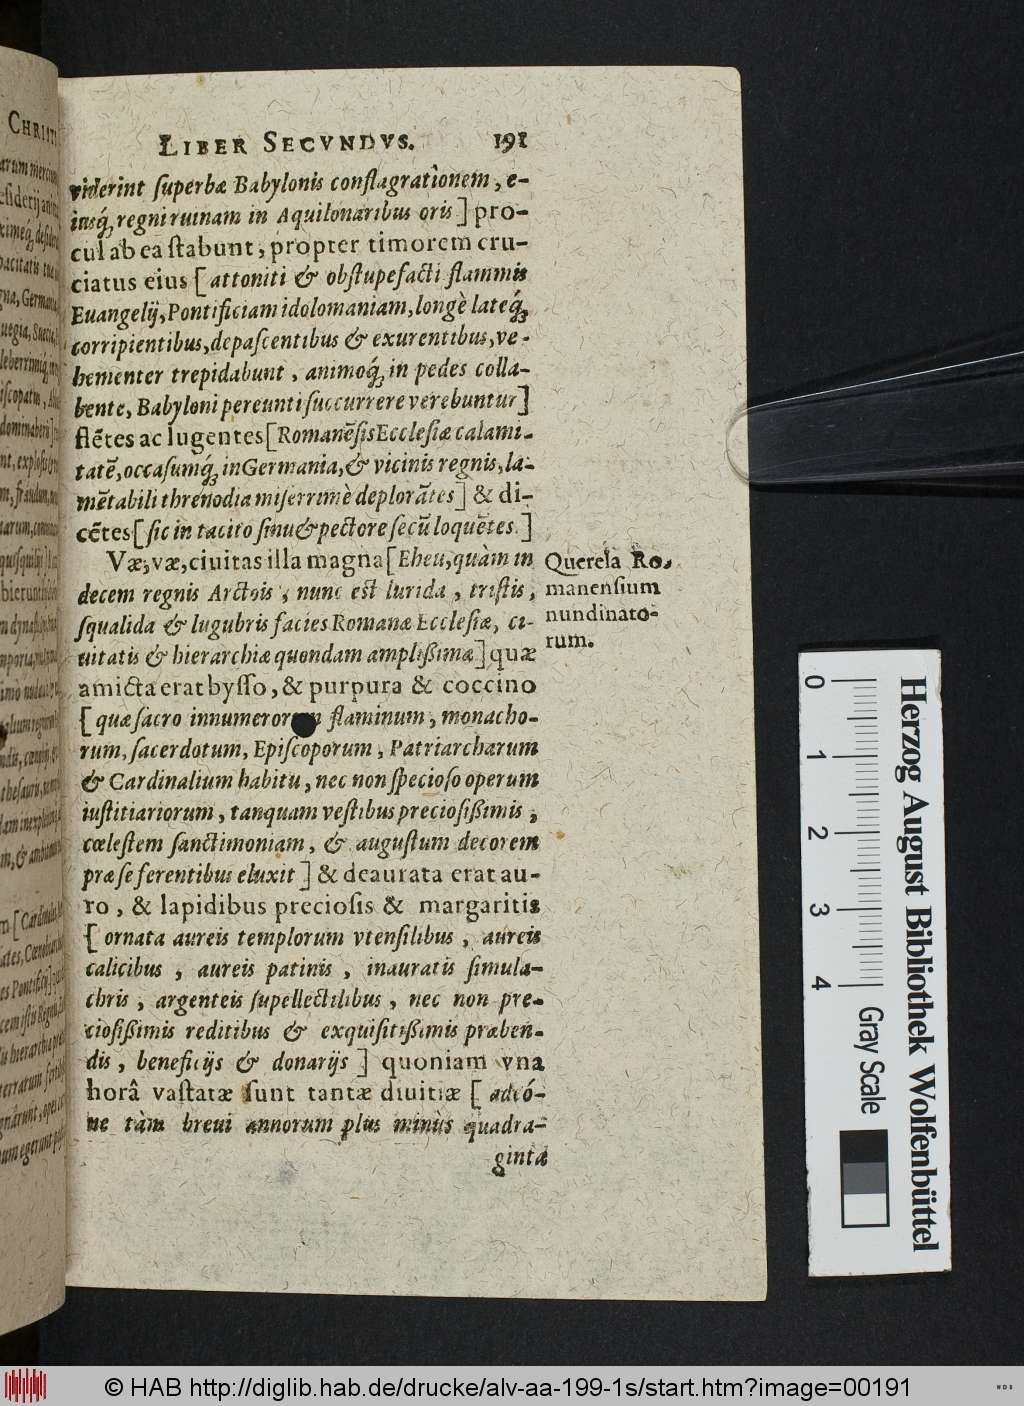 LIBER SECVNDVS. 191
viderint ſuperbæ Babylonis conflagrationem, e-
iusq́; regni ruinam in Aquilonaribus oris] pro-
cul ab ea ſtabunt, propter timorem cru-
ciatus eius [attoniti & obſtupefacti flammis
Euangelij, Pontificiam idolomaniam, longè lateq́;
corripientibus, depaſcentibus & exurentibus, ve-
hementer trepidabunt, animoq́; in pedes colla-
bente, Babyloni pereunti ſuccurrere verebuntur]
flẽtes ac lugentes [Romanẽſis Eccleſiæ calami-
tatẽ, occaſumq́; in Germania, & vicinis regnis, la-
mẽtabili threnodia miſerrimè deplorãtes] & di-
cẽtes [ſic in tacito ſinu & pectore ſecũ loquẽtes.]
Væ, væ, ciuitas illa magna [Eheu, quàm in
decem regnis Arctois, nunc eſt lurida, triſtis,
ſqualida & lugubris facies Romanæ Eccleſiæ, ci-
uitatis & hierarchiæ quondam ampliſsimæ] quæ
amicta erat byſſo, & purpura & coccino
[quæ ſacro innumerorum flaminum, monacho-
rum, ſacerdotum, Epiſcoporum, Patriarcharum
& Cardinalium habitu, nec non ſpecioſo operum
iuſtitiariorum, tanquam veſtibus precioſiſsimis,
cœleſtem ſanctimoniam, & auguſtum decorem
præ ſe ferentibus eluxit] & deaurata erat au-
ro, & lapidibus precioſis & margaritis
[ornata aureis templorum vtenſilibus, aureis
calicibus, aureis patinis, inauratis ſimula-
chris, argenteis ſupellectilibus, nec non pre-
cioſiſsimis reditibus & exquiſitiſsimis præben-
dis, beneficijs & donarijs] quoniam vna
horâ vaſtatæ ſunt tantæ diuitiæ [adeó-
ne tàm breui annorum plus minùs quadra-
ginta
Querela Ro-
manenſium
nundinato-
rum.
CHRISTI
Herzog August Bibliothek Wolfenbüttel
0 1 2 3 4
Gray Scale
© HAB http://diglib.hab.de/drucke/alv-aa-199-1s/start.htm?image=00191